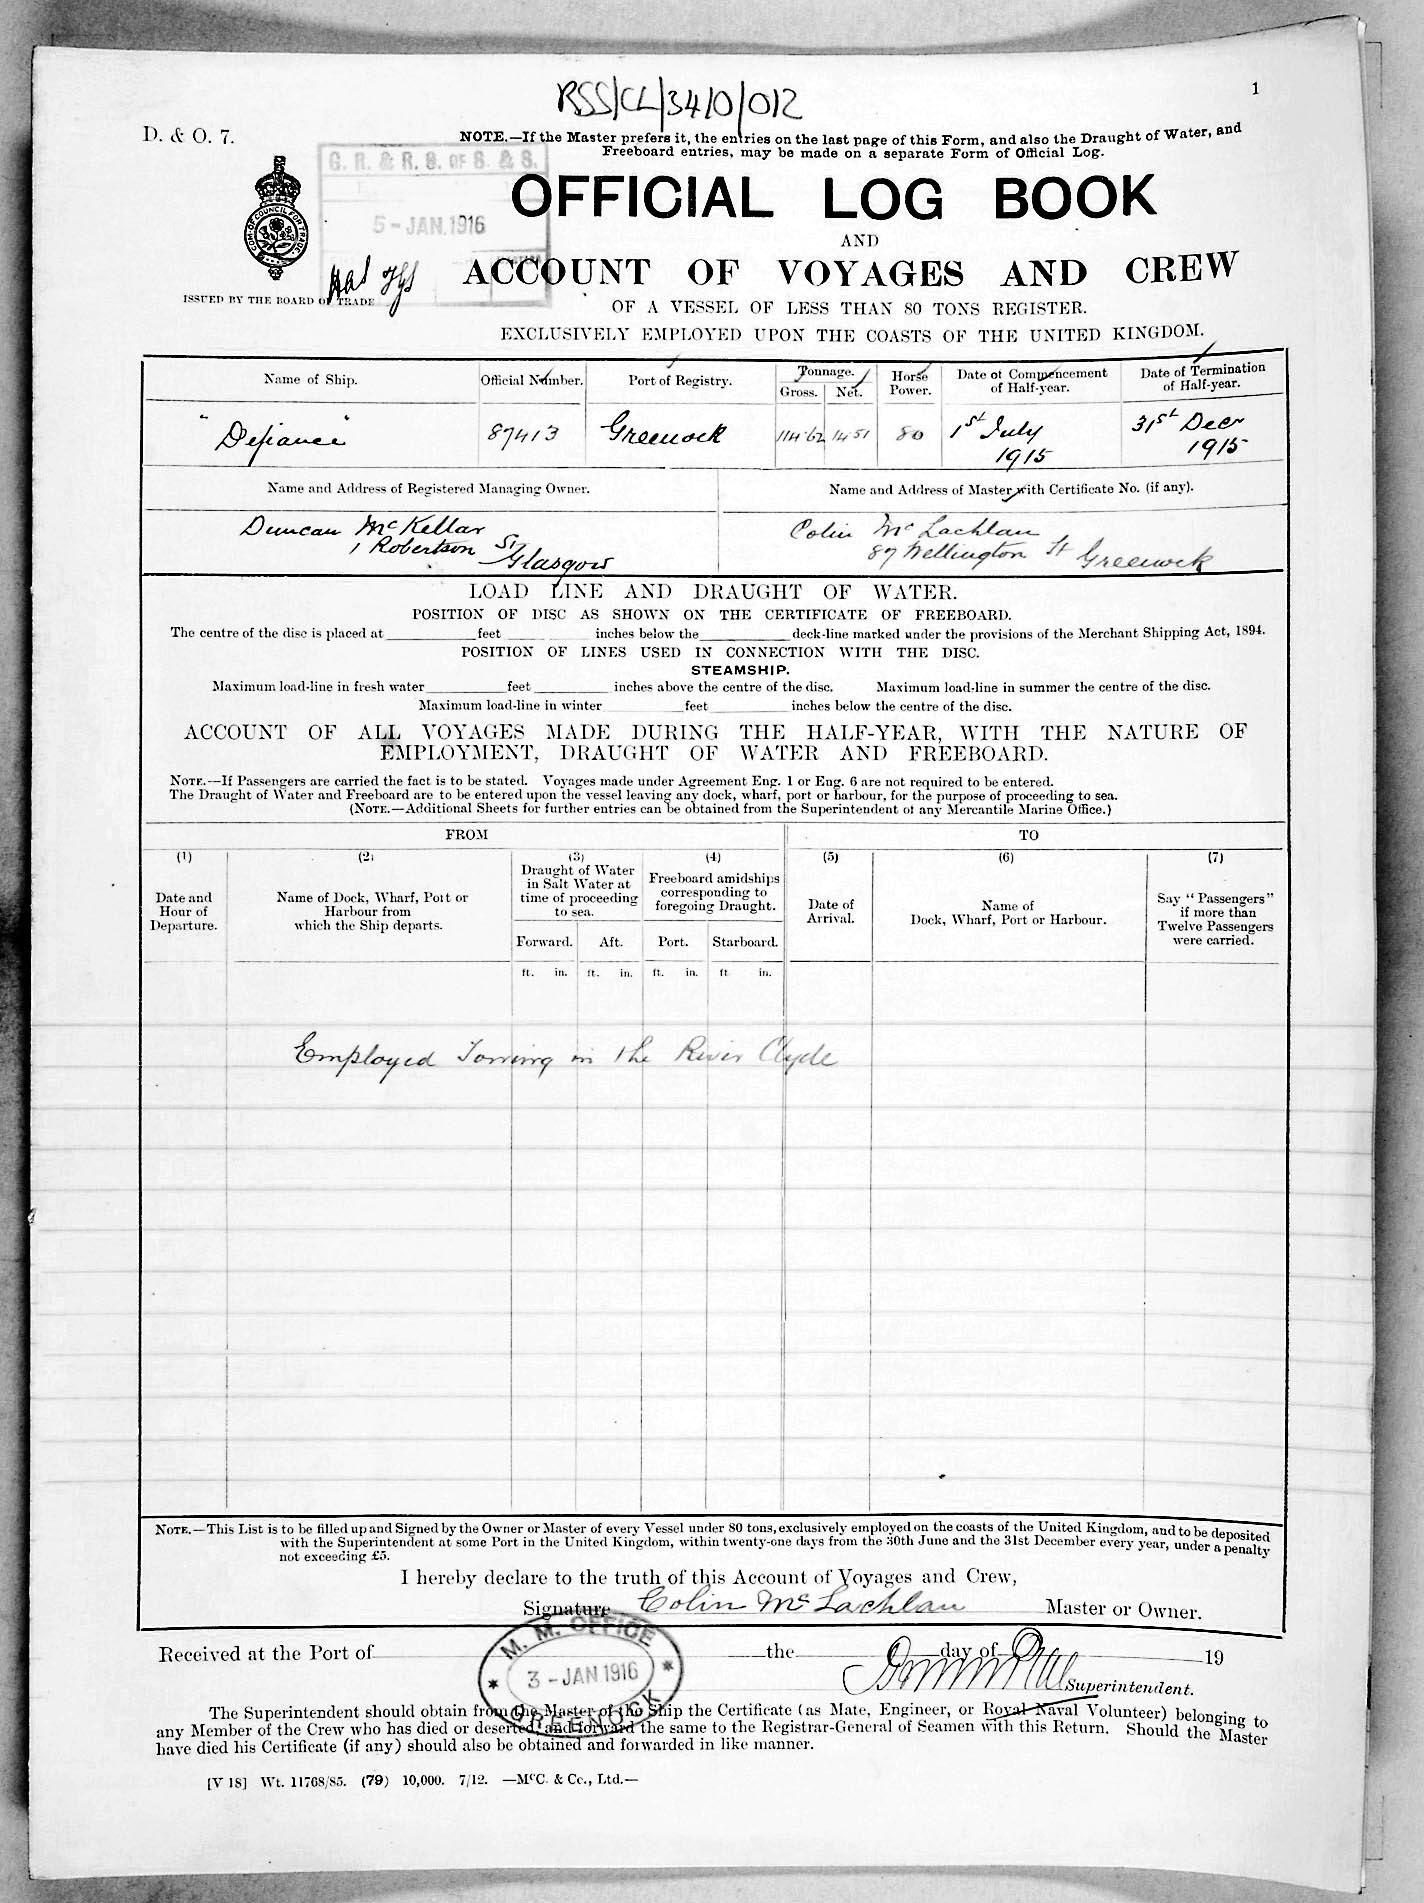 RSS/CL/340/012
1
D. & O. 7.
NOTE.—If the Master prefers it, the entries on the last page of this Form, and also the Draught of Water, and
Freeboard entries, may be made on a separate Form of Official Log.
G. R. & R. G. OF S. & S.
5-JAN.1916
OFFICIAL LOG BOOK
AND
ACCOUNT OF VOYAGES AND CREW
ISSUED BY THE BOARD OF TRADE
OF A VESSEL OF LESS THAN 80 TONS REGISTER.
EXCLUSIVELY EMPLOYED UPON THE COASTS OF THE UNITED KINGDOM.
Name of Ship. Official Number. Port of Registry. Tonnage. Gross. Net. Horse Power. Date of Commencement of Half-year. Date of Termination of Half-year.
"Defiance" 87413 Greenock 114.62 14.51 80 1st July 1915 31st Decr 1915
Name and Address of Registered Managing Owner. Name and Address of Master with Certificate No. (if any).
Duncan McKellar Colin McLachlan
1 Robertson St 87 Wellington St Greenock
Glasgow
LOAD LINE AND DRAUGHT OF WATER.
POSITION OF DISC AS SHOWN ON THE CERTIFICATE OF FREEBOARD.
The centre of the disc is placed at feet inches below the deck-line marked under the provisions of the Merchant Shipping Act, 1894.
POSITION OF LINES USED IN CONNECTION WITH THE DISC.
STEAMSHIP.
Maximum load-line in fresh water feet inches above the centre of the disc. Maximum load-line in summer the centre of the disc.
Maximum load-line in winter feet inches below the centre of the disc.
ACCOUNT OF ALL VOYAGES MADE DURING THE HALF-YEAR, WITH THE NATURE OF
EMPLOYMENT, DRAUGHT OF WATER AND FREEBOARD.
NOTE.—If Passengers are carried the fact is to be stated. Voyages made under Agreement Eng. 1 or Eng. 6 are not required to be entered.
The Draught of Water and Freeboard are to be entered upon the vessel leaving any dock, wharf, port or harbour, for the purpose of proceeding to sea.
(NOTE.—Additional Sheets for further entries can be obtained from the Superintendent of any Mercantile Marine Office.)
FROM TO
(1) (2) (3) (4) (5) (6) (7)
Date and Hour of Departure.
Name of Dock, Wharf, Port or Harbour from which the Ship departs.
Draught of Water in Salt Water at time of proceeding to sea.
Freeboard amidships corresponding to foregoing Draught.
Date of Arrival.
Name of Dock, Wharf, Port or Harbour.
Say "Passengers" if more than Twelve Passengers were carried.
Forward. Aft. Port. Starboard.
ft. in. ft. in. ft. in. ft in.
Employed Towing in the River Clyde
NOTE.—This List is to be filled up and Signed by the Owner or Master of every Vessel under 80 tons, exclusively employed on the coasts of the United Kingdom, and to be deposited
with the Superintendent at some Port in the United Kingdom, within twenty-one days from the 30th June and the 31st December every year, under a penalty
not exceeding £5.
I hereby declare to the truth of this Account of Voyages and Crew,
Signature Colin McLachlan Master or Owner.
Received at the Port of the day of 19
M. M. OFFICE
3-JAN 1916
GREENOCK
Superintendent.
The Superintendent should obtain from the Master of the Ship the Certificate (as Mate, Engineer, or Royal Naval Volunteer) belonging to
any Member of the Crew who has died or deserted, and forward the same to the Registrar-General of Seamen with this Return. Should the Master
have died his Certificate (if any) should also be obtained and forwarded in like manner.
[V 18] Wt. 11768/85. (79) 10,000. 7/12. —McC. & Co., Ltd.—